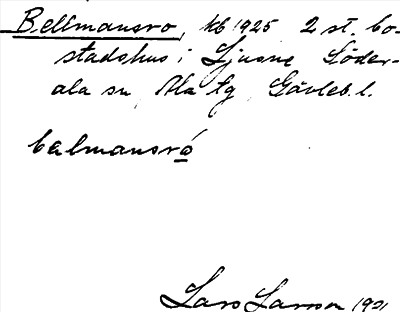 Bellmansro, kb 1925 2 st. bo-
stadshus i Ljusne Söder-
ala sn Ala tg Gävleb. l.
balmansró
Lars Larsson 1921